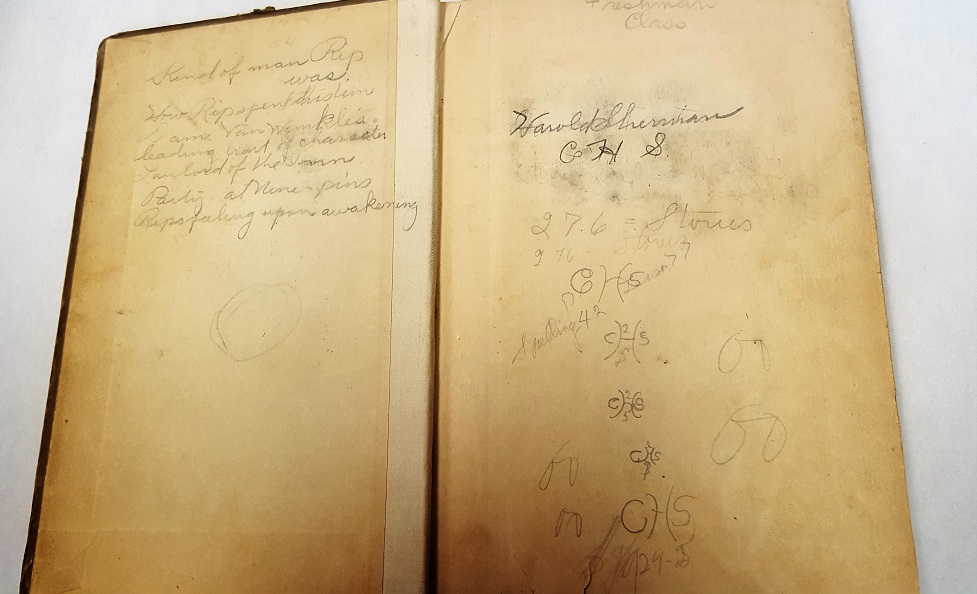 Kind of man Rip
was.
How Rip spent his time
Dame Van Winkle's
leading trait of character
Landlord of the Inn
Party at Nine-pins
Rips feeling upon awakening
Freshman
Class
Harold Sherman
C H S.
27.6 = Stories
276 Stories
CHS
Spelling 42
C H S
C H S
C H S
CHS